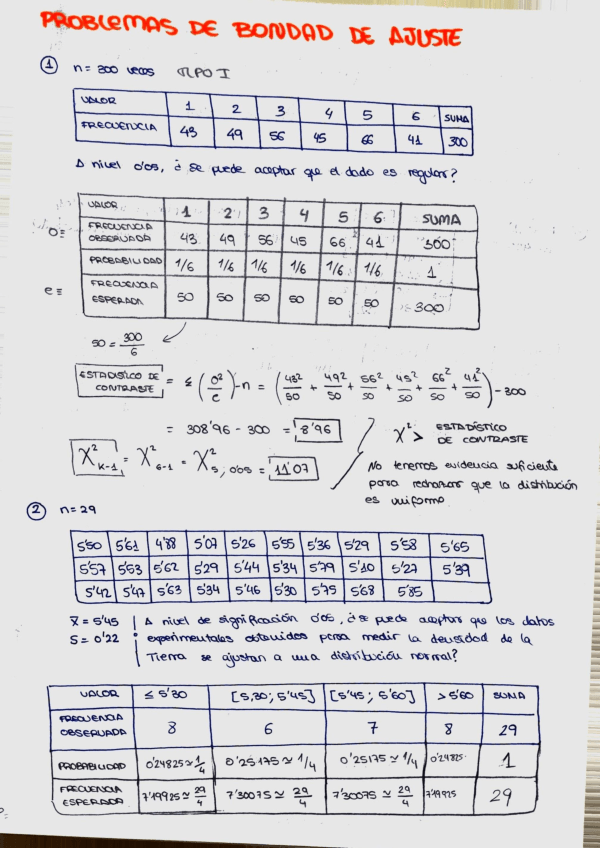 PROBLEMAS DE BONDAD DE AJUSTE
① n = 300 veces TIPO I
VALOR 1 2 3 4 5 6 SUMA
FRECUENCIA 43 49 56 45 66 41 300
A nivel 0'05, ¿ se puede aceptar que el dado es regular?
VALOR 1 2 3 4 5 6 SUMA
O≡ FRECUENCIA OBSERVADA 43 49 56 45 66 41 300
PROBABILIDAD 1/6 1/6 1/6 1/6 1/6 1/6 1
e≡ FRECUENCIA ESPERADA 50 50 50 50 50 50 300
50 = 300/6
ESTADÍSTICO DE CONTRASTE = Σ (O²/e) - n = (43²/50 + 49²/50 + 56²/50 + 45²/50 + 66²/50 + 41²/50) - 300
= 308'96 - 300 = 8'96
χ² > ESTADÍSTICO DE CONTRASTE
χ²K-1 = χ²6-1 = χ²5, 0'05 = 11'07
No tenemos evidencia suficiente
para rechazar que la distribución
es uniforme
② n = 29
5'50 5'61 4'88 5'07 5'26 5'55 5'36 5'29 5'58 5'65
5'57 5'53 5'62 5'29 5'44 5'34 5'79 5'10 5'27 5'39
5'42 5'47 5'63 5'34 5'46 5'30 5'75 5'68 5'85
x̄ = 5'45 A nivel de significación 0'05, ¿se puede aceptar que los datos
S = 0'22 experimentales obtenidos para medir la densidad de la
Tierra se ajustan a una distribución normal?
VALOR ≤ 5'30 [5,30; 5'45] [5'45; 5'60] > 5'60 SUMA
FRECUENCIA OBSERVADA 8 6 7 8 29
PROBABILIDAD 0'24825 ≃ 1/4 0'25175 ≃ 1/4 0'25175 ≃ 1/4 0'24825 1
FRECUENCIA ESPERADA 7'19925 ≃ 29/4 7'30075 ≃ 29/4 7'30075 ≃ 29/4 7'19925 29